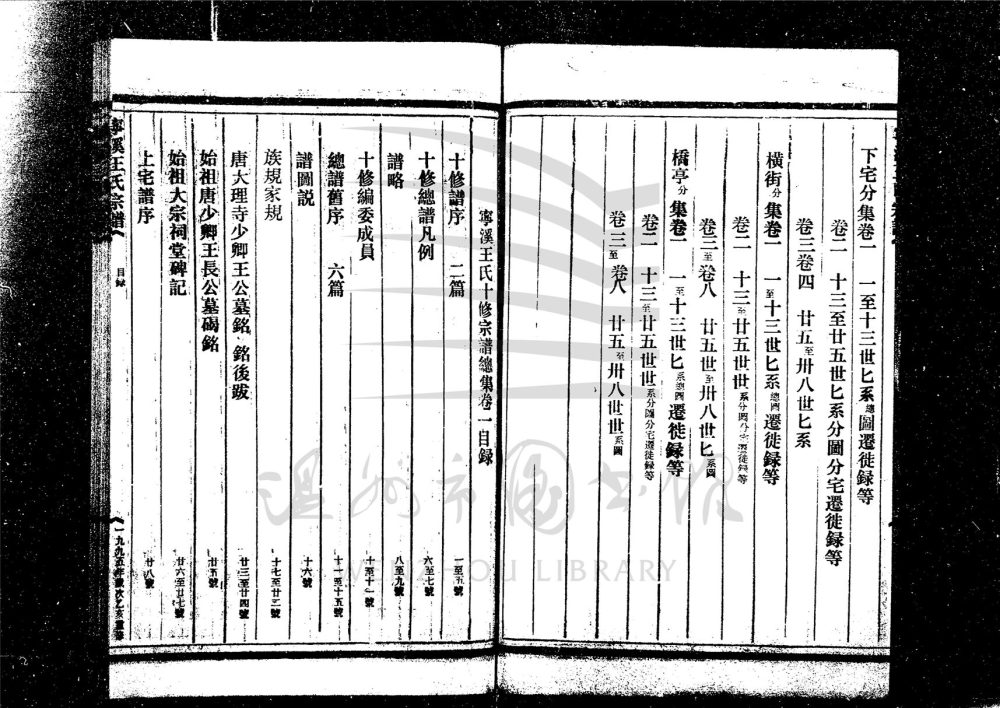 下宅分集卷一 一至十三世匕系總圖遷徙録等
卷二 十三至廿五世匕系分圖分宅遷徙録等
卷三卷四 廿五至卅八世匕系
橫街分集卷一 一至十三世匕系總圖遷徙録等
卷二 十三至廿五世世系分圖分宅遷徙録等
卷三至卷八 廿五世至卅八世匕系圖
橋亭分集卷一 一至十三世匕系總圖遷徙録等
卷二 十三至廿五世世系分圖分宅遷徙録等
卷三至卷八 廿五至卅八世世系圖
寧溪王氏十修宗譜總集卷一目録
十修譜序 二篇 一至五號
十修總譜凡例 六至七號
譜略 八至九號
十修編委成員 十至十一號
總譜舊序 六篇 十一至十五號
譜圖説 十六號
族規家規 十七至廿二號
唐大理寺少卿王公墓銘、銘後跋 廿三至廿四號
始祖唐少卿王長公墓碣銘 廿五號
始祖大宗祠堂碑記 廿六至廿七號
上宅譜序 廿八號
寧溪王氏宗譜 目録 一九九五年歲次乙亥重修
溫州市圖書館
WENZHOU LIBRARY